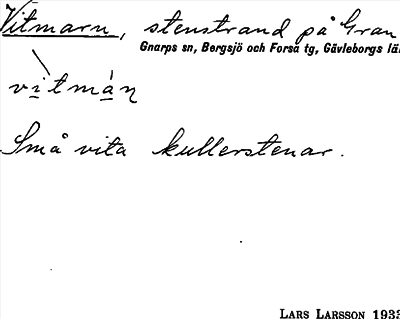 Vitmarn, stenstrand på Gran
Gnarps sn, Bergsjö och Forsa tg, Gävleborgs lä
vitmán
Små vita kullerstenar.
LARS LARSSON 1933